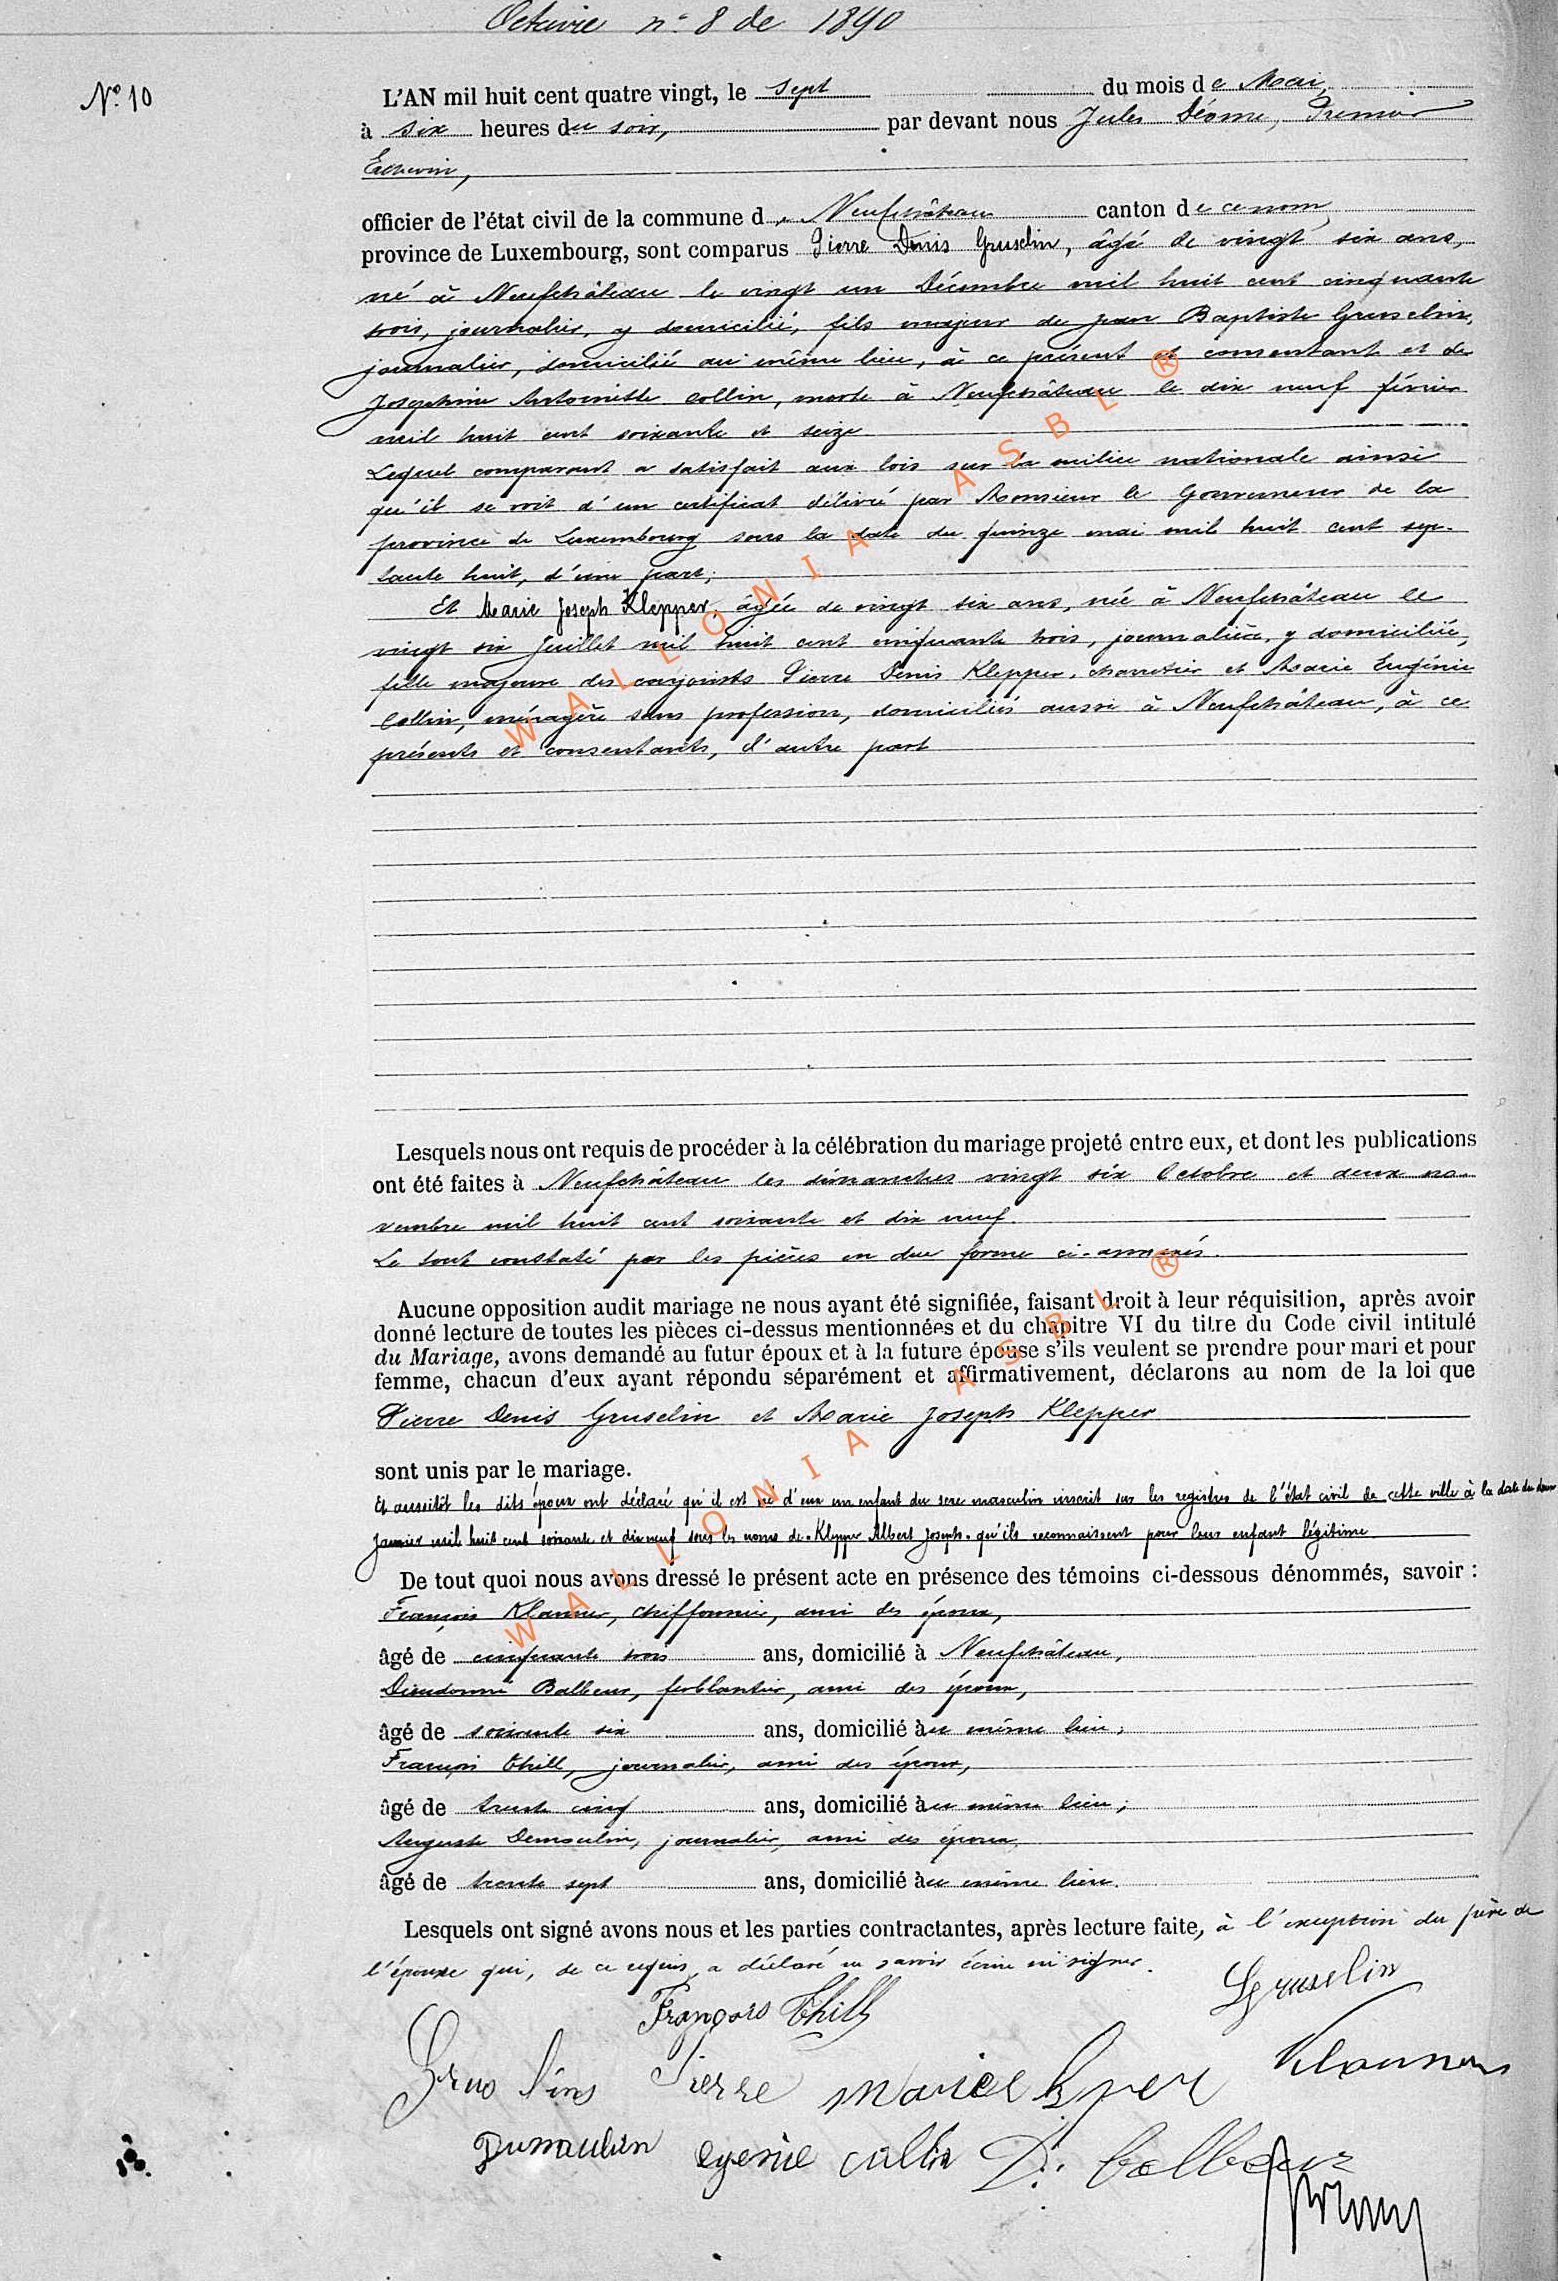 Octavie n° 8 de 1890
N° 10
L'AN mil huit cent quatre vingt, le sept du mois de Mai,
à six heures du soir, par devant nous Jules Déome, Premier
Echevin,
officier de l'état civil de la commune de Neufchâteau canton de ce nom,
province de Luxembourg, sont comparus Pierre Denis Gruselin, âgé de vingt six ans,
né à Neufchâteau le vingt un Décembre mil huit cent cinquante
trois, journalier, y domicilié, fils majeur de Jean Baptiste Gruselin,
journalier, domicilié au même lieu, à ce présent et consentant et de
Joséphine Antoinette Collin, morte à Neufchâteau le dix neuf février
mil huit cent soixante et seize
Lequel comparant a satisfait aux lois sur la milice nationale ainsi
qu'il se voit d'un certificat délivré par Monsieur le Gouverneur de la
province de Luxembourg sous la date du quinze mai mil huit cent sep-
tante huit, d'une part;
Et Marie Joseph Klepper, âgée de vingt six ans, née à Neufchâteau le
vingt six Juillet mil huit cent cinquante trois, journalière, y domiciliée,
fille majeure des conjoints Pierre Denis Klepper, charretier et Marie Eugénie
Collin, ménagère sans profession, domiciliés aussi à Neufchâteau, à ce
présents et consentants, d'autre part
Lesquels nous ont requis de procéder à la célébration du mariage projeté entre eux, et dont les publications
ont été faites à Neufchâteau les dimanches vingt six Octobre et deux no-
vembre mil huit cent soixante et dix neuf.
Le tout constaté par les pièces en due forme ci-annexés.
Aucune opposition audit mariage ne nous ayant été signifiée, faisant droit à leur réquisition, après avoir
donné lecture de toutes les pièces ci-dessus mentionnées et du chapitre VI du titre du Code civil intitulé
du Mariage, avons demandé au futur époux et à la future épouse s'ils veulent se prendre pour mari et pour
femme, chacun d'eux ayant répondu séparément et affirmativement, déclarons au nom de la loi que
Pierre Denis Gruselin et Marie Joseph Klepper
sont unis par le mariage.
Et aussitôt les dits époux ont déclaré qu'il est né d'eux un enfant du sexe masculin inscrit sur les registres de l'état civil de cette ville à la date du deux
Janvier mil huit cent soixante et dix neuf sous les noms de Klepper Albert Joseph qu'ils reconnaissent pour leur enfant légitime
De tout quoi nous avons dressé le présent acte en présence des témoins ci-dessous dénommés, savoir :
François Klauner, chiffonnier, ami des époux,
âgé de cinquante trois ans, domicilié à Neufchâteau,
Dieudonné Balbeur, ferblantier, ami des époux,
âgé de soixante six ans, domicilié au même lieu;
François Thill, journalier, ami des époux,
âgé de trente cinq ans, domicilié au même lieu;
Auguste Demoulin, journalier, ami des époux
âgé de trente sept ans, domicilié au même lieu.
Lesquels ont signé avons nous et les parties contractantes, après lecture faite, à l'exception du père de
l'épouse qui, de ce requis, a déclaré ne savoir écrire ni signer.
Gruselin
François Thill
Klauner
Pierre
Dumoulin egenie collin D.
WALLONIA ASBL ®
WALLONIA ASBL ®